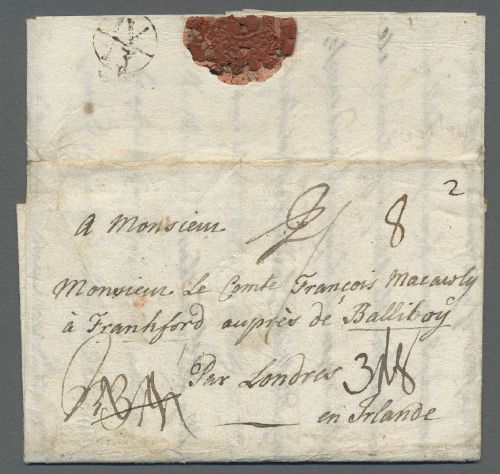 2
8
A Monsieur
Monsieur Le Comte François Macawly
à Frankford auprès de Balliboÿ
Par Londres 3/1/8
en Irlande